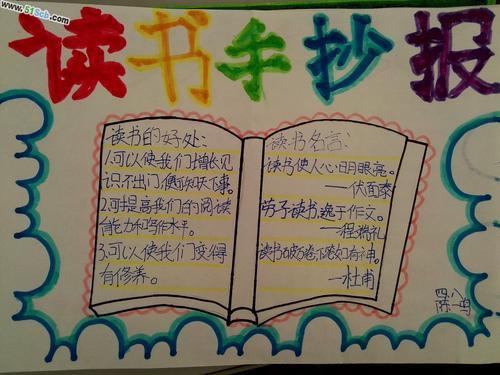 www.51Scb.com
读书手抄报
读书的好处:
1.可以使我们增长见
识,不出门,便可知天下事。
2.可提高我们的阅读
能力和写作水平。
3.可以使我们变得
有修养。
读书名言:
读书使人心日月眼亮。
—伏面泰
劳于读书,逸于作文。
—程端礼
读书破万卷,下笔如有神。
—杜甫
四、八